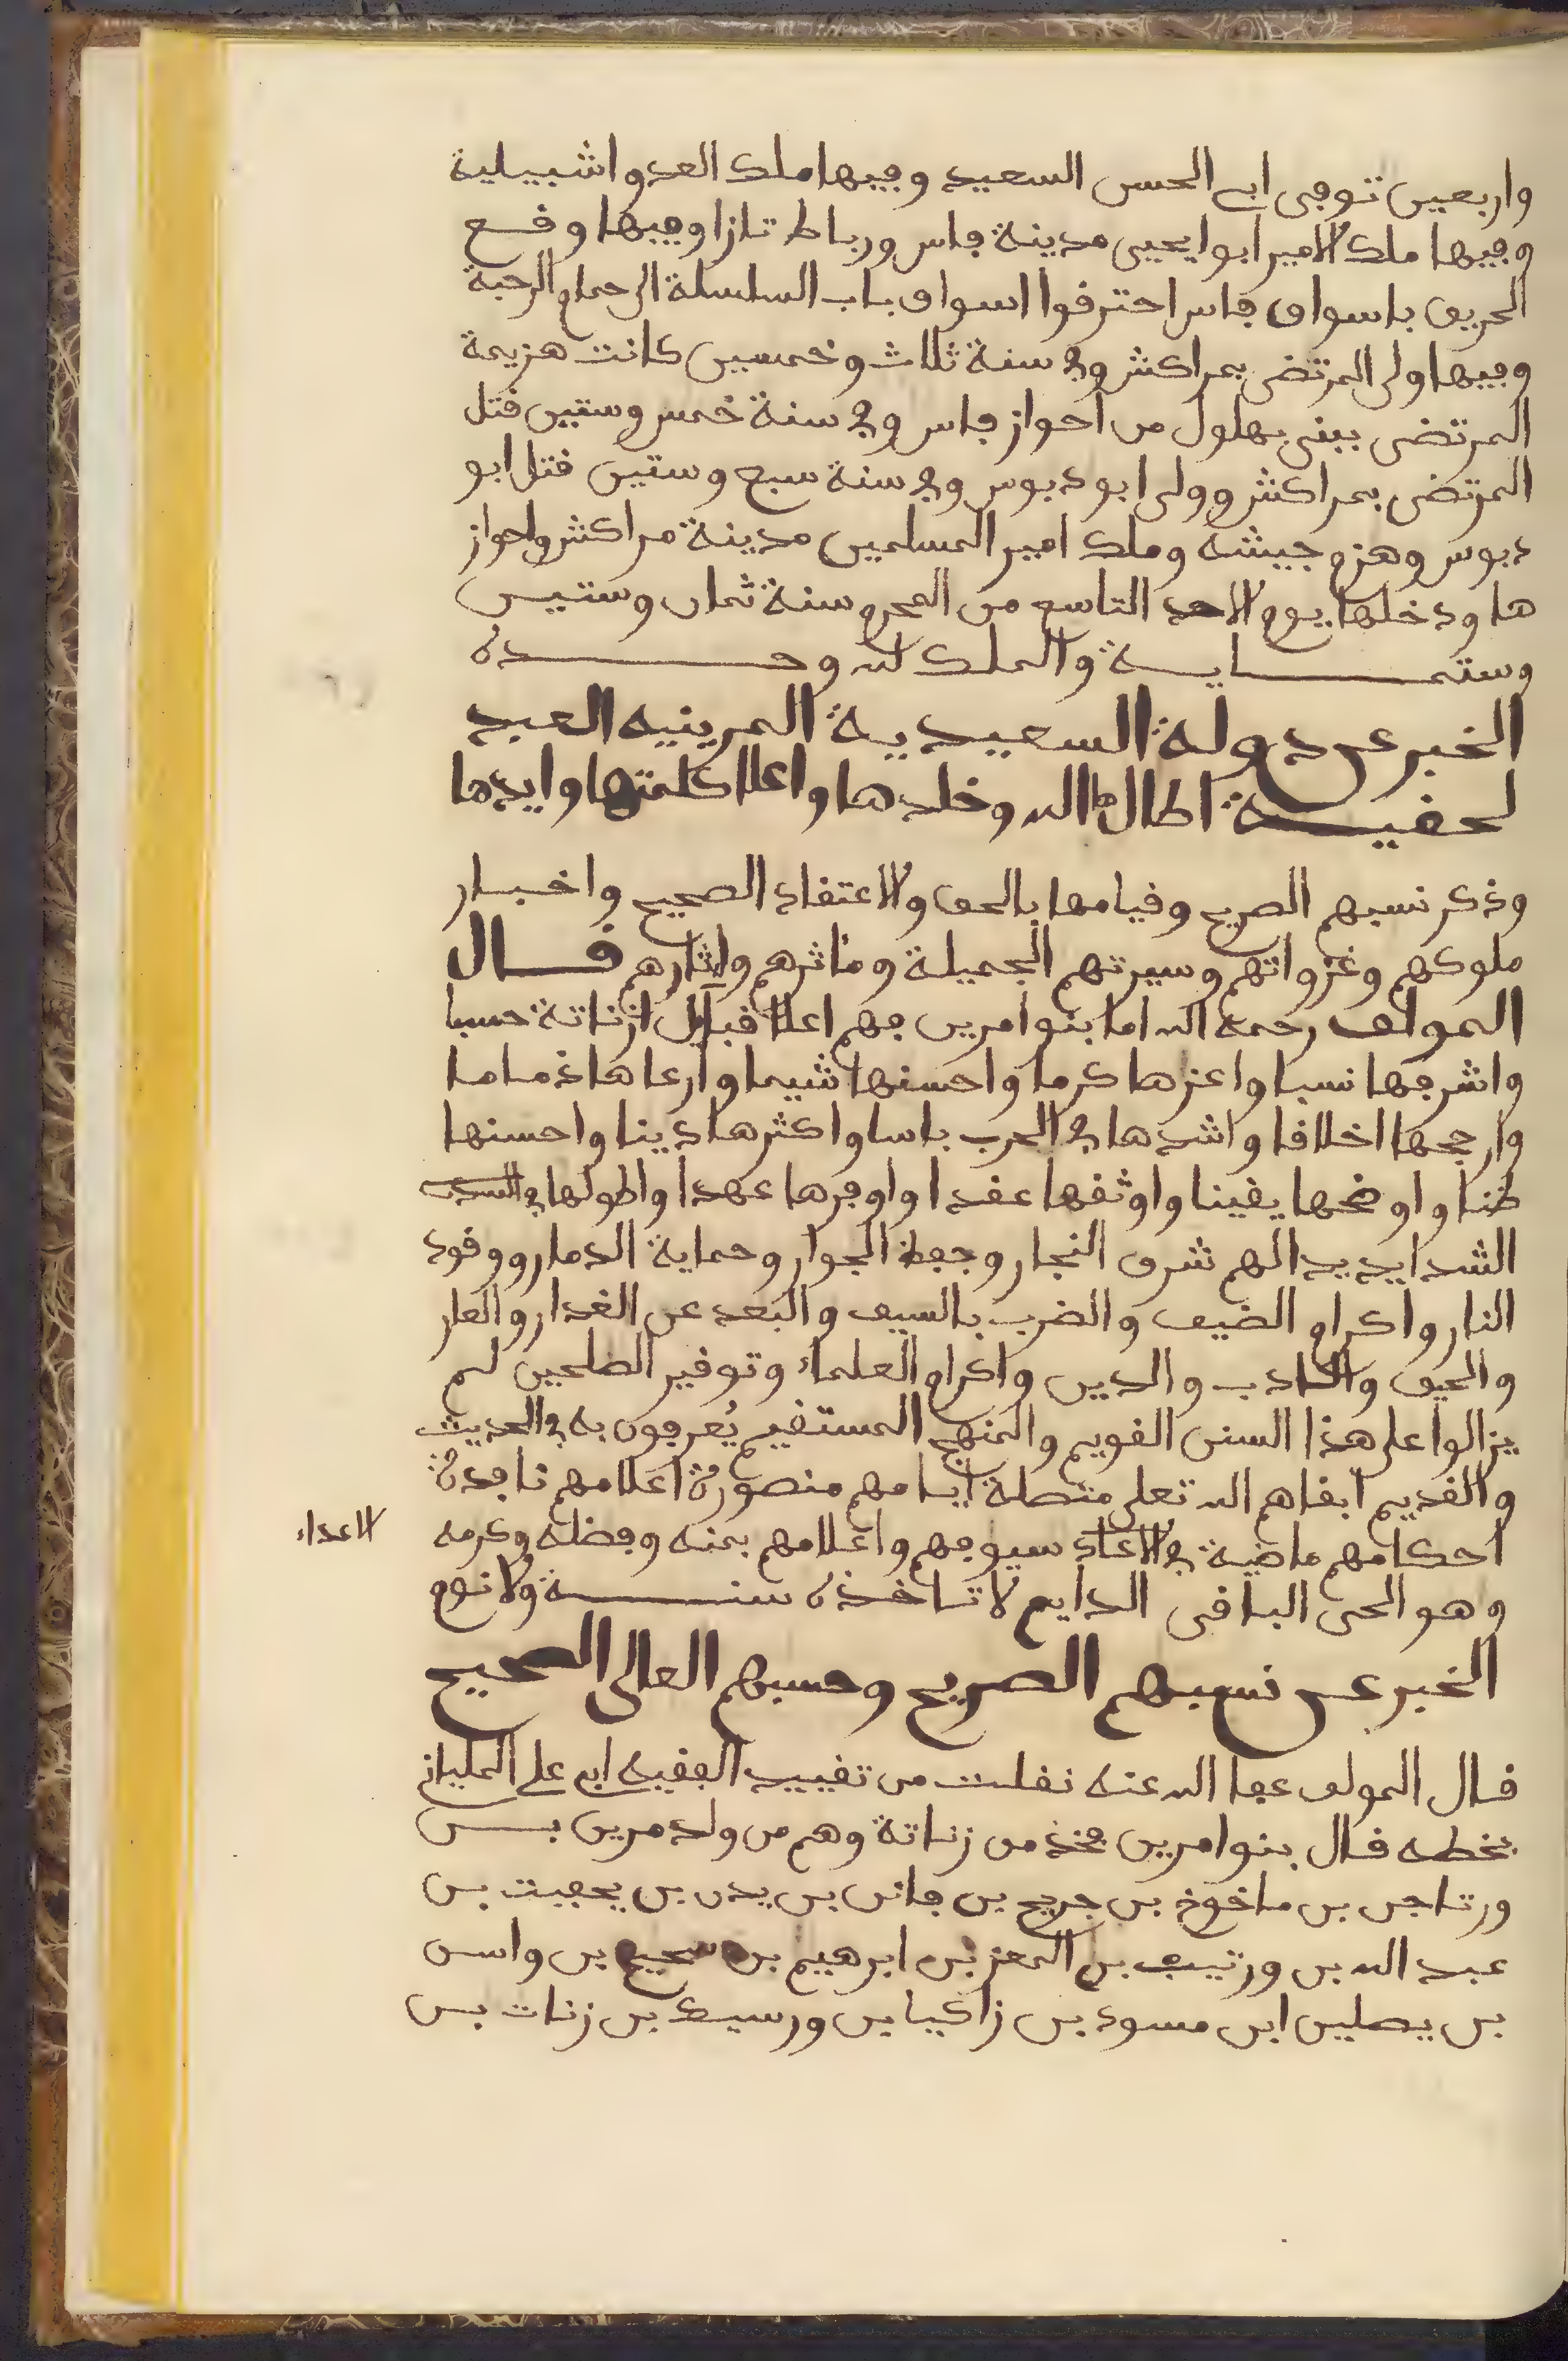 واربعين توفى ابى الحسن السعيد وفيها ملك العدو اشبيلية
وفيها ملك الامير ابوا يحيى مدينة فاس ورباط تازا وفيها وقع
الحريق باسواق فاس احترقوا اسواق باب السلسلة الى حمام الرحبة
وفيها ولى المرتضى بمراكش وفي سنة ثلاث وخمسين كانت هزيمة
المرتضى ببنى بهلول من احواز فاس وفي سنة خمس وستين قتل
المرتضى بمراكش وولى ابو دبوس وفي سنة سبع وستين قتل ابو
دبوس وهزم جيشه وملك امير المسلمين مدينة مراكش واحواز
ها ودخلها يوم الاحد التاسع من المحرم سنة ثمان وستين
وستماية والملك لله وحده
الخبر عن دولة السعيدية المرينية العبد
لحقية اطالها الله وخلدها واعلا كلمتها وايدها
وذكر نسبهم الصريح وقيامها بالحق والاعتقاد الصحيح واخبار
ملوكهم وغزواتهم وسيرتهم الجميلة ومأثرهم واثارهم قال
المولف رحمه الله اما بنوا مرين فهم اعلا قبايل ازناتة حسبا
واشرفها نسبا واعزها كرما واحسنها شيما وارعاها ذماما
وارجحها اخلاقا واشدها في الحرب باسا واكثرها دينا واحسنها
ظنا واوضحها يقينا واوثقها عقدا واوفرها عهدا واطولها في السدت
الشدايد يدا لهم شرف النجار وحفظ الجوار وحماية الدمار ووقود
النار واكرام الضيف والضرب بالسيف والبعد عن الغدار والعار
والحيف والكادب والدين واكرام العلماء وتوقير الصلحين لم
يزالوا على هذا السنن القويم والمنهج المستقيم يُعرفون به في الحديث
والقديم ابقاهم الله تعلى متصلة ايامهم منصورة اعلامهم نافدة
احكامهم ماضية في الاعاد سيوفهم واعلامهم بمنه وفضله وكرمه
الاعداء
وهو الحى الباقى الدايم لا تاخذه سنة ولا نوم
الخبر عن نسبهم الصريح وحسبهم العالى الصحيح
قال المولف عفا الله عنه نقلت من تقييد الفقيه ابى على الملياني
بخطه قال بنوا مرين فخذ من زناتة وهم من ولد مرين بن
ورتاجن بن ماخوخ بن جريح بن فاتن بن يدر بن يجفيت بن
عبد الله بن ورتيب بن المعز بن ابرهيم بن سحيح بن واسن
بن يصلين ابن مسود بن زاكيا بن ورسيك بن زنات بن